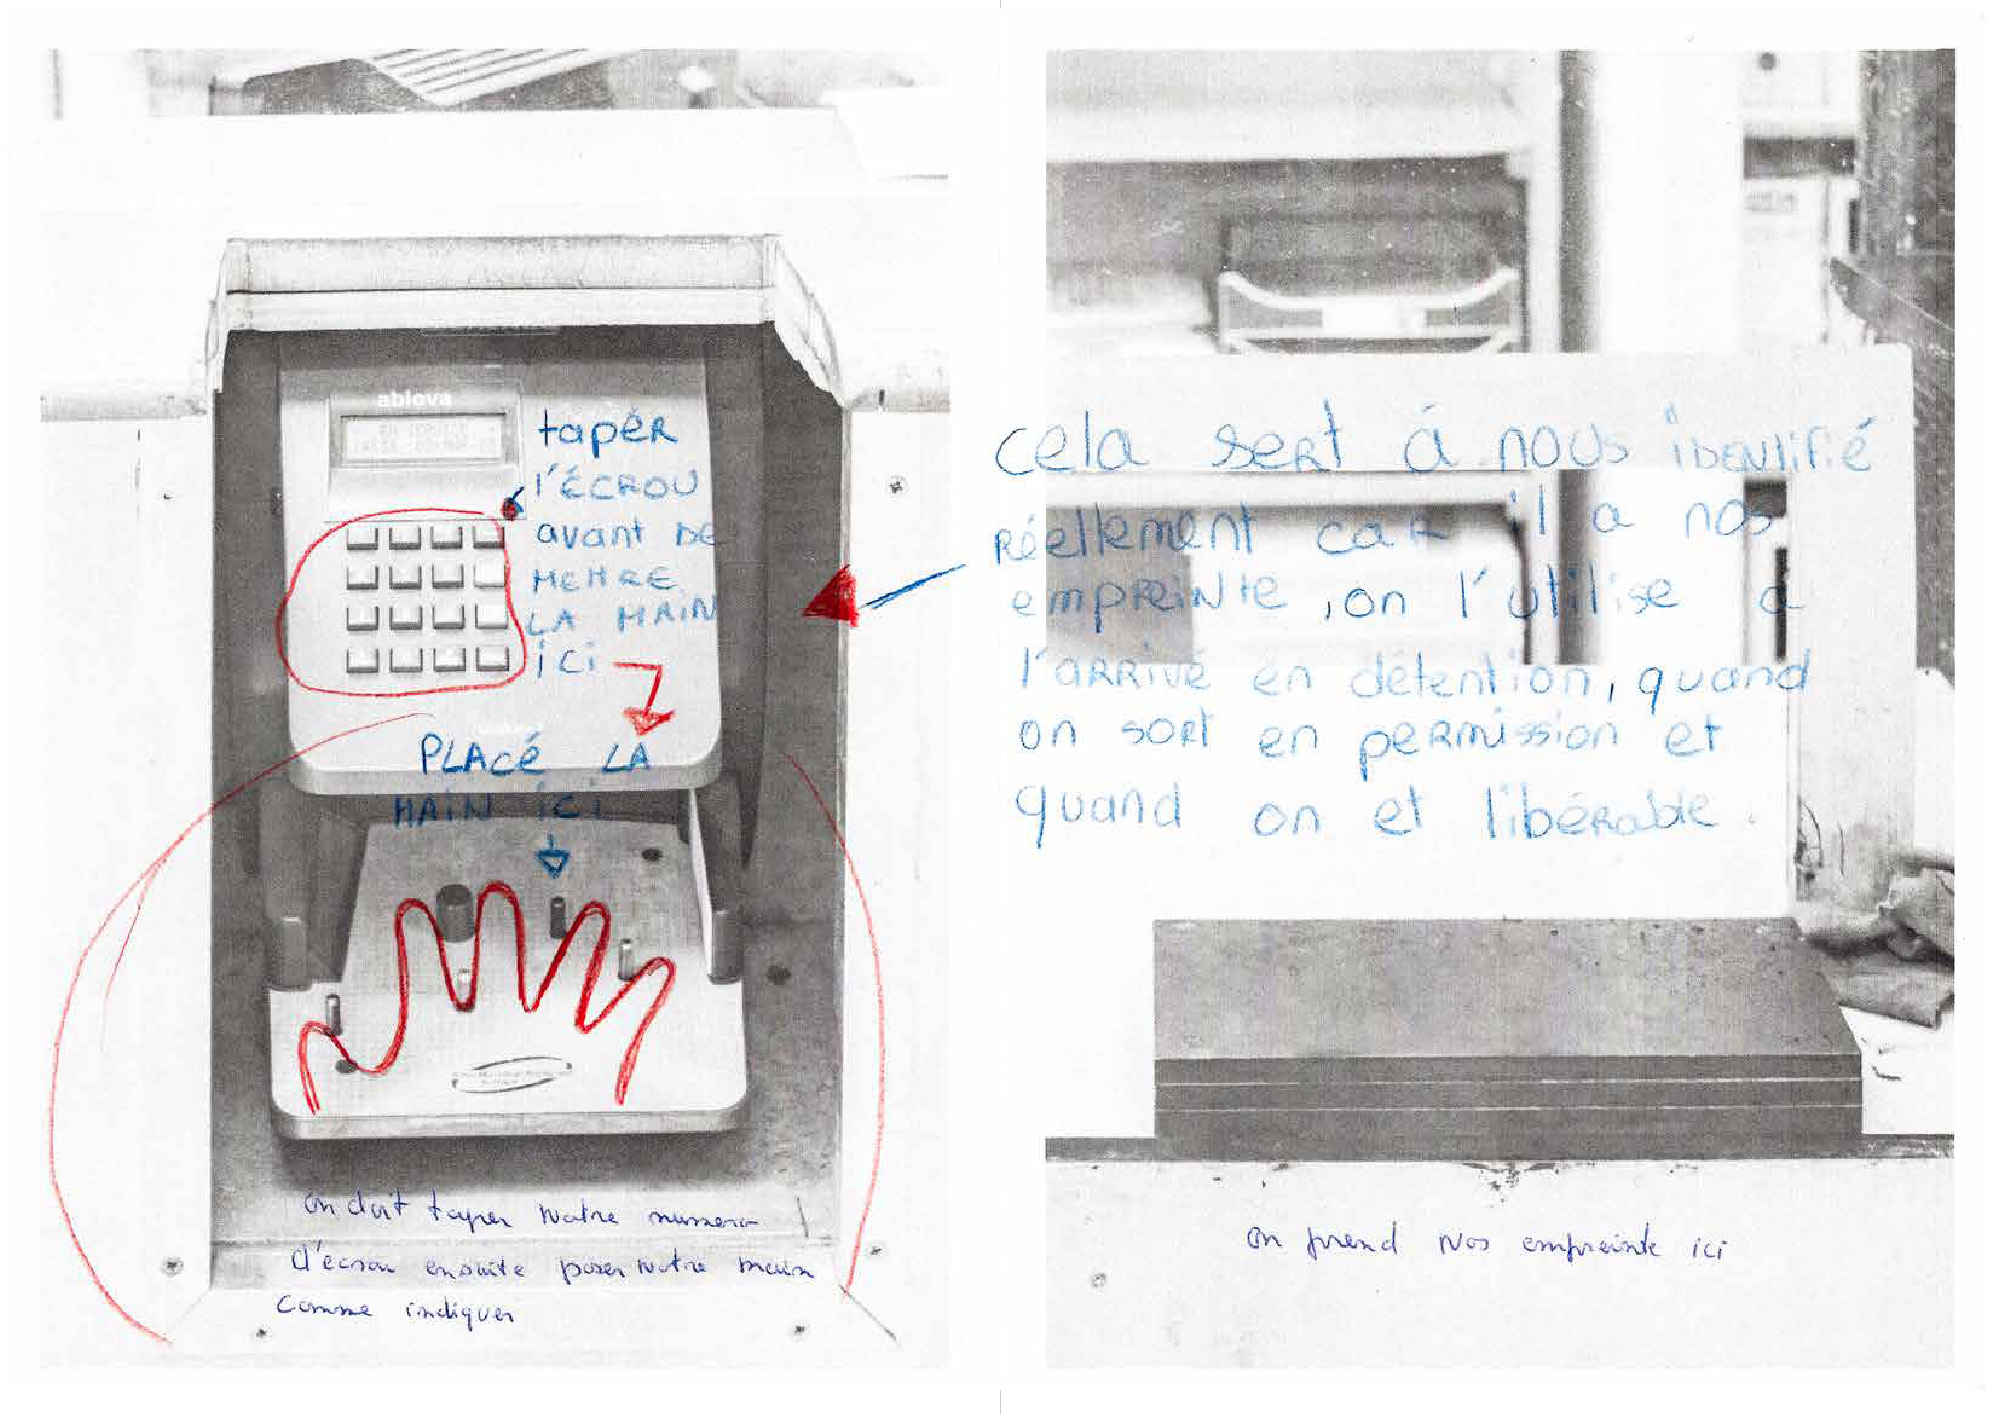 ablova
tapér
l'ÉCROU
avant DE
METTRE
LA MAIN
ici
PLACÉ LA
MAIN ici
on doit taper notre numero
d'écrou ensuite poser notre main
comme indiquer
cela sert á nous identifié
réellement car il a nos
empreinte, on l'utilise a
l'arrivé en détention, quand
on sort en permission et
quand on et libérable.
on prend nos empreinte ici